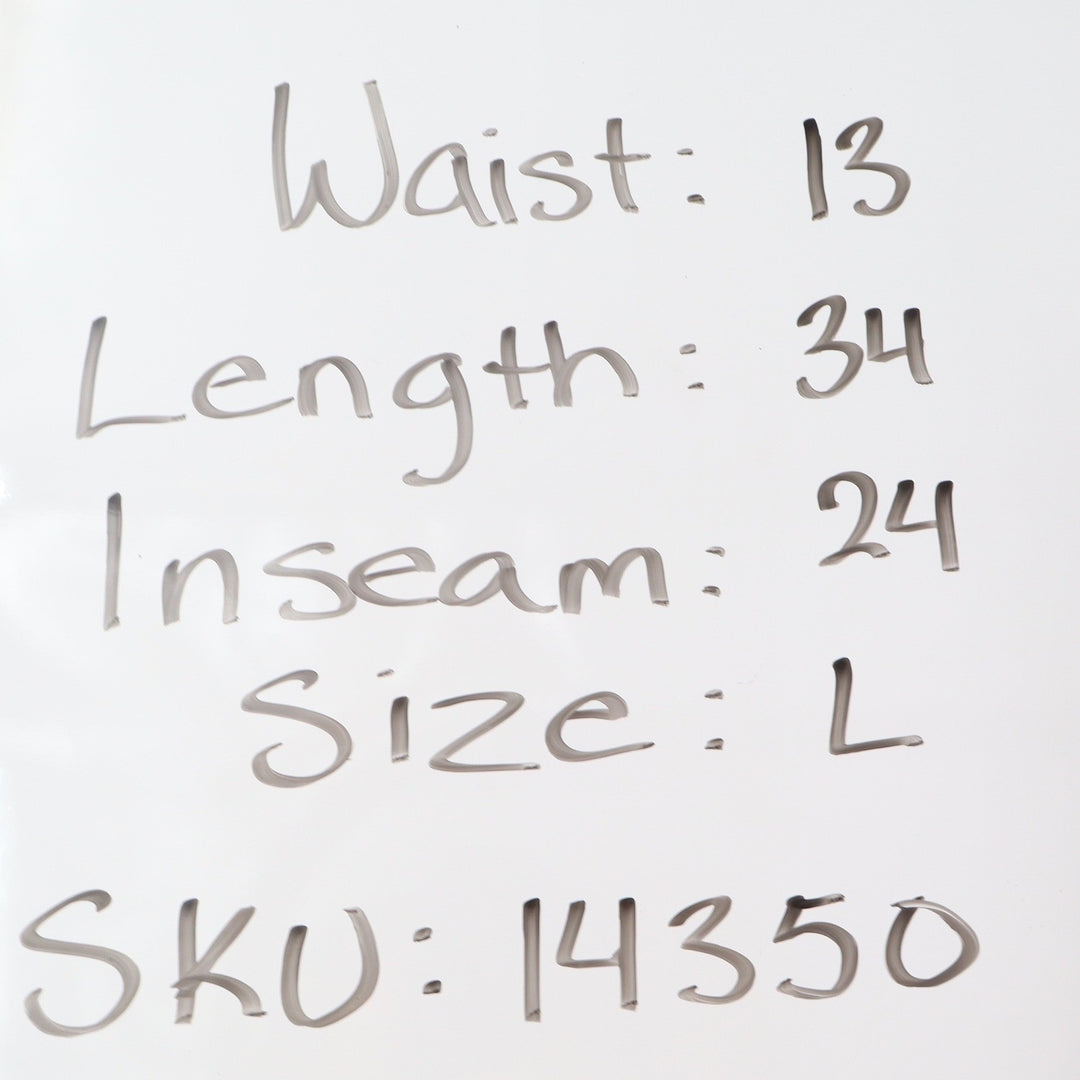 Waist: 13
Length: 34
Inseam: 24
Size: L
SKU: 14350